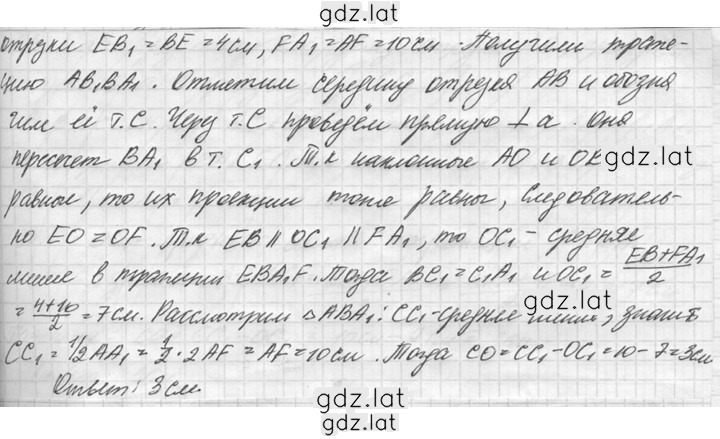 gdz.lat
отрезки EB₁ = BE = 4 см, FA₁ = AF = 10 см. Получили трапе-
цию AB₁BA₁. Отметим середину отрезка AB и обозна
чим её т. C. Через т. C проведём прямую ⊥ a. Она
пересечет BA₁ в т. C₁. Т.к наклонные AO и OK
gdz.lat
равные, то их проекции тоже равны, следователь-
но EO = OF. Т.к EB || OC₁ || FA₁, то OC₁ - средняя
линия в трапеции EBA₁F. Тогда BC₁ = C₁A₁ и OC₁ = (EB+FA₁)/2
= (4+10)/2 = 7 см. Рассмотрим △ABA₁: CC₁-средняя линия, значит
CC₁ = 1/2 AA₁ = 1/2 · 2AF = AF = 10 см. Тогда CO = CC₁ - OC₁ = 10 - 7 = 3 см
Ответ: 3 см
gdz.lat
gdz.lat